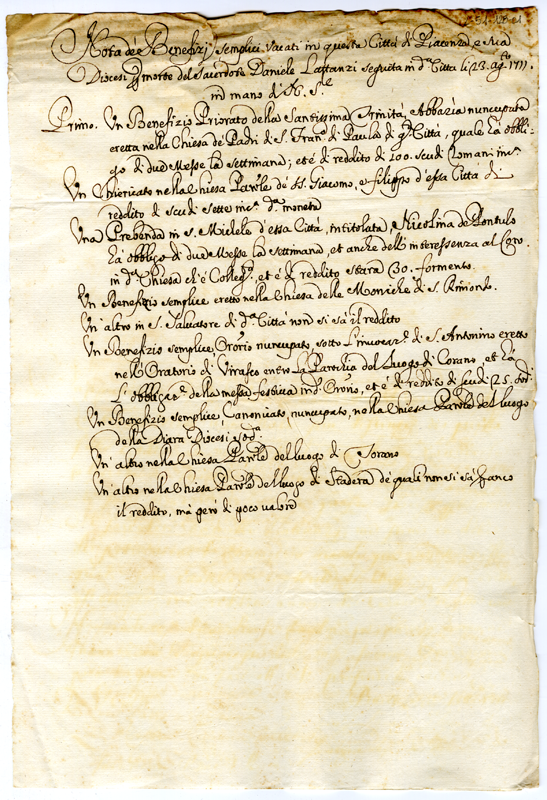 Nota dè Benefizj semplici vacati in questa Città di Piacenza, e sua
Diocesi per morte del Sacerdote Daniele Lattanzi seguita in d.a Città li 23. ag.to 1711.
in mano di N. S.re
Primo. Un Benefizio Priorato della Santissima Trinità, Abbazia nuncupata
eretta nella Chiesa de Padri di S. Fran.o di Paula di q.ta Città, quale hà obbli-
go di due Messe la settimana; et è di reddito di 100. scudi Romani inc.a
Un Chiericato nella Chiesa Par.le de SS. Giacomo, e filippo d'essa Città di
reddito di scudi sette inc.a d.a moneta
Una Prebenda in S. Michele d'essa Città, intitolata, Nicolina de Pontulo
hà obbligo di due Messe la settimana, et anche dell'interessenza al Coro
in d.a Chiesa ch'è Colleg.a, et è di reddito stara 30. formento.
Un Benefizio semplice eretto nella Chiesa delle Moniche di S.
Un altro in S. Salvatore di d.a Città non si sà il reddito
Un Benefizio semplice, Or.orio nuncupato, sotto l'invocaz.e di S. Antonino eretto
nell'Oratorio di Virasco entro la Parochia del Luogo di Corano, et hà
L'obbligaz.e della messa festiva in d.o Or.orio, et è di reddito di scudi 25.
Un Benefizio semplice, Canonicato, nuncupato, nella Chiesa Par.le del luogo
della Diara Diocesi sod.a
Un altro nella Chiesa Par.le del luogo di Sorano
Un altro nella Chiesa Par.le del luogo di Stadera de quali non si sà
il reddito, mà però di poco valore